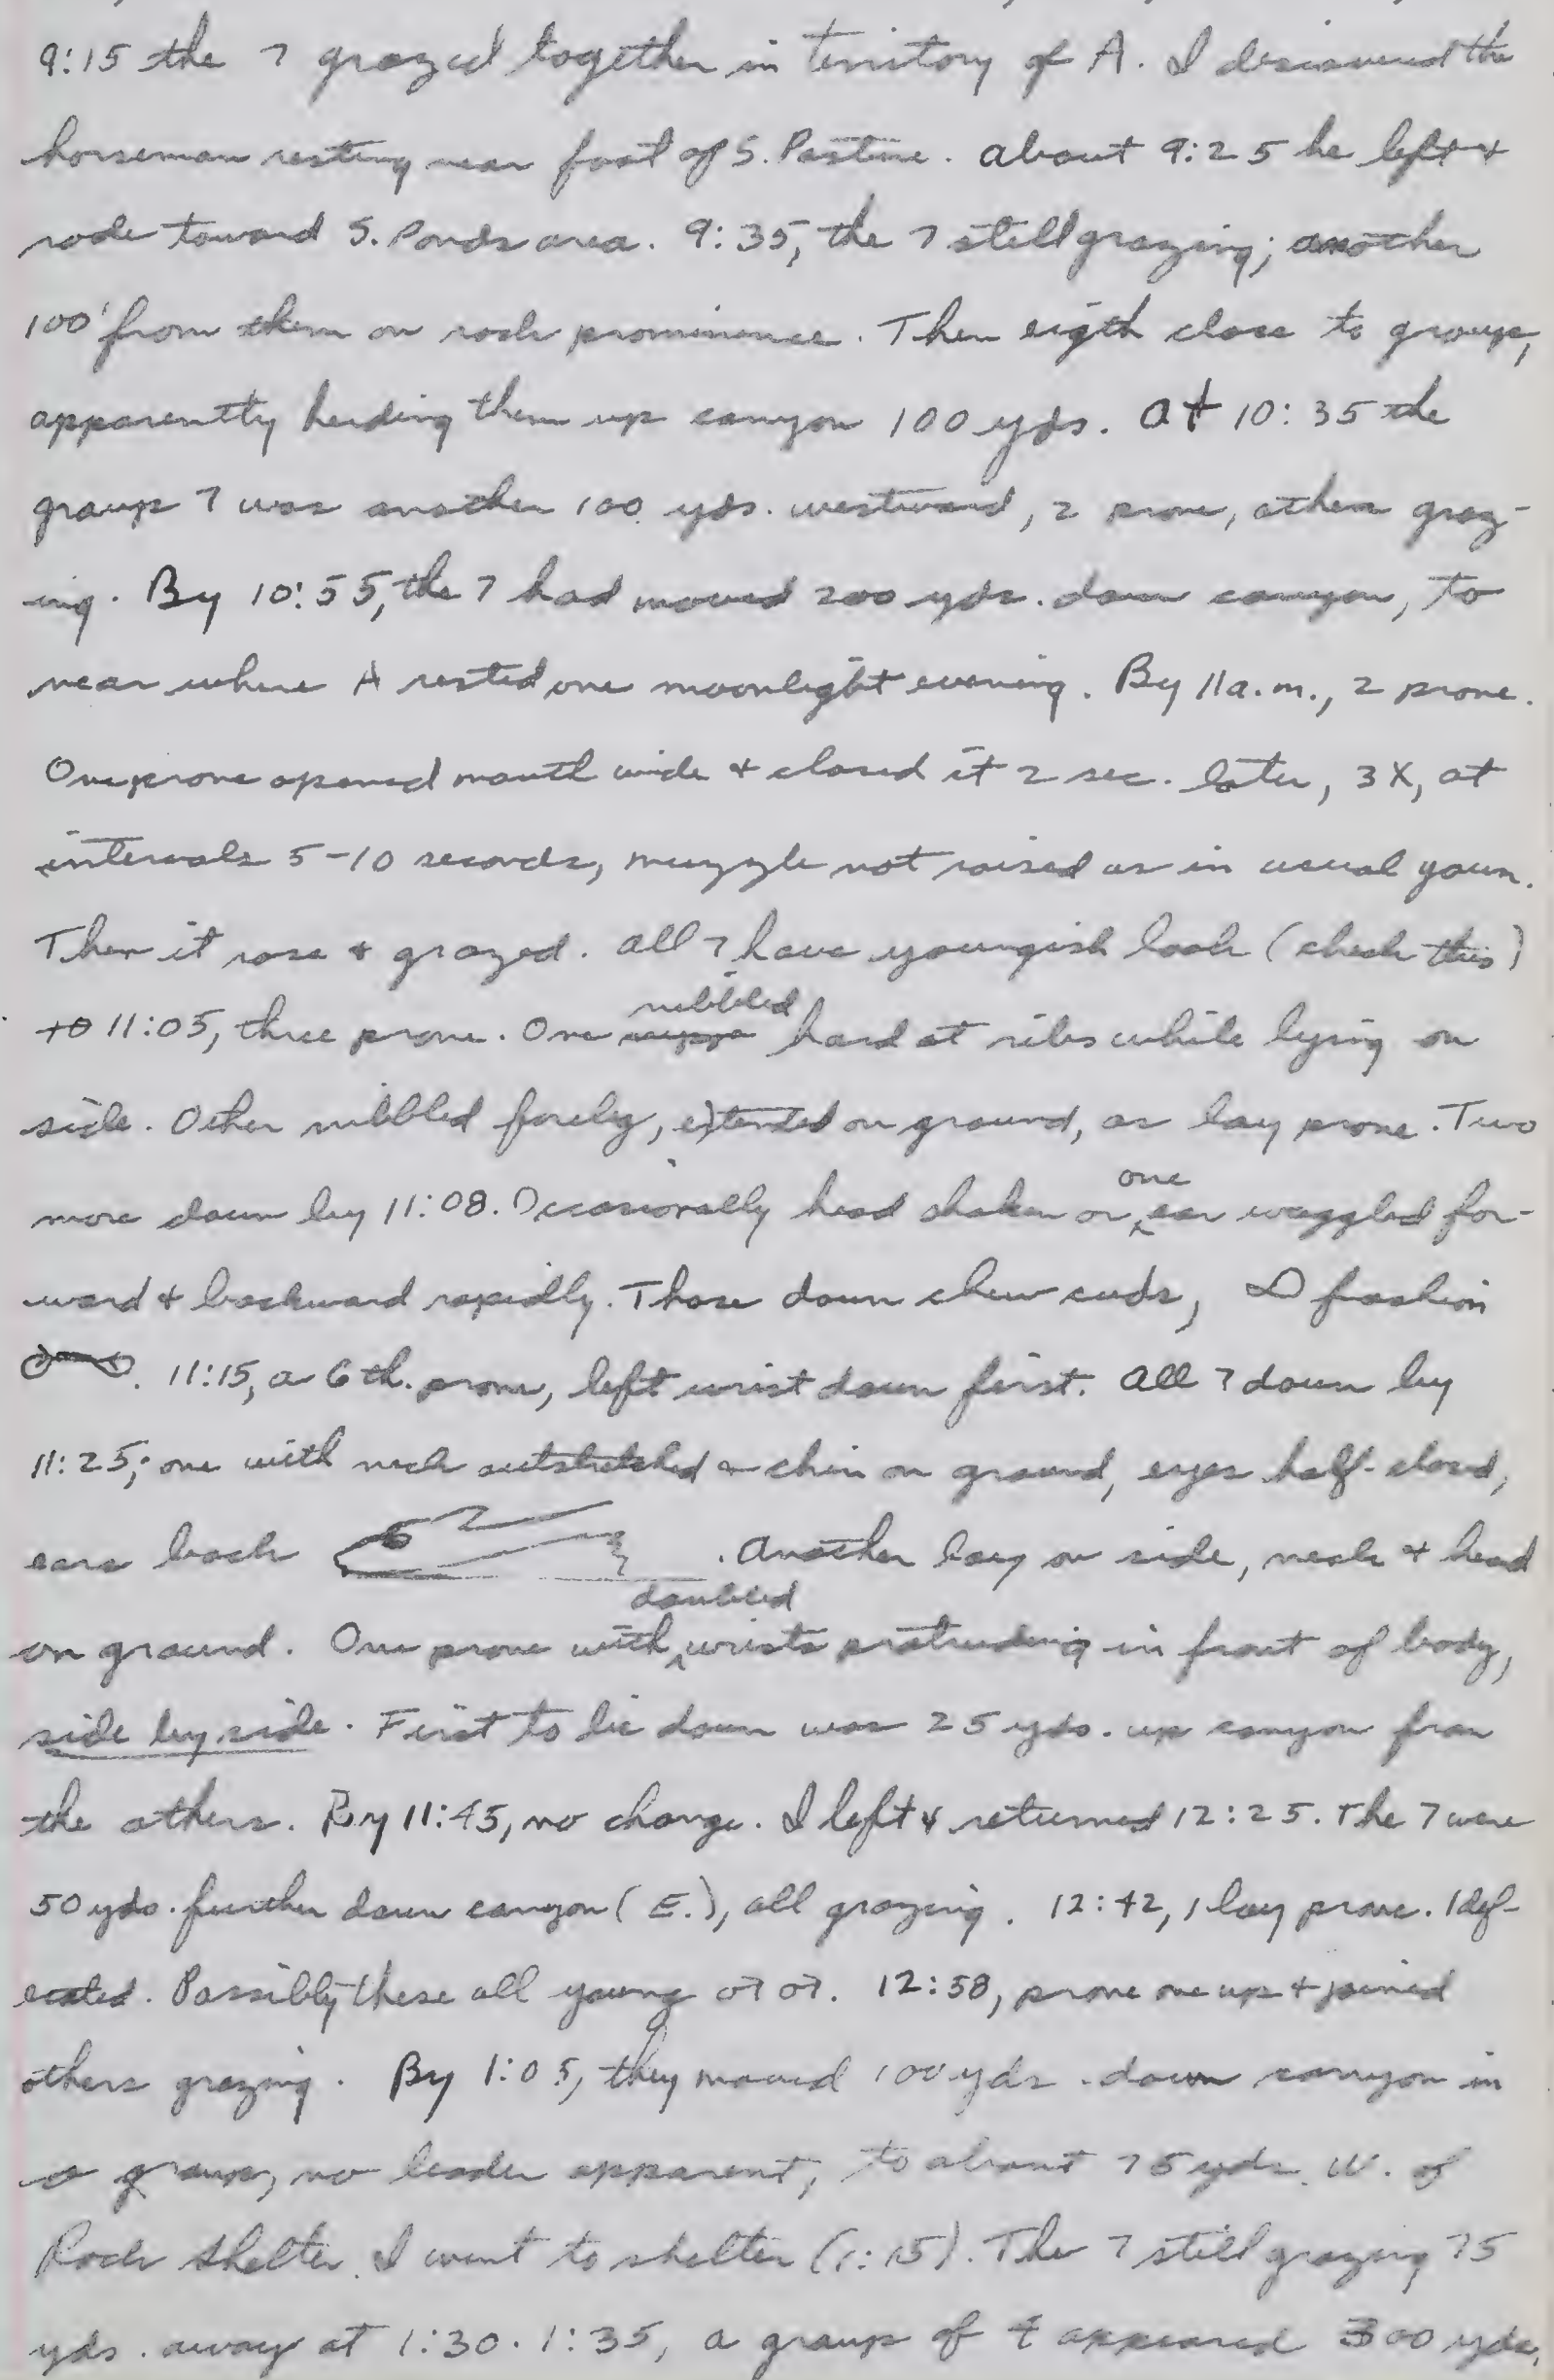 9:15 the 7 grazed together in territory of A. I discovered the
horseman resting near foot of S. Pasture. About 9:25 he left +
rode toward S. Ponds area. 9:35, the 7 still grazing; another
100' from them on rock prominence. Then eigth close to group,
apparently herding them up canyon 100 yds. At 10:35 the
group 7 was another 100 yds. westward, 2 prone, others graz-
ing. By 10:55, the 7 had moved 200 yds. down canyon, to
near where A rested one moonlight evening. By 11 a.m., 2 prone.
One prone opened mouth wide + closed it 2 sec. later, 3X, at
intervals 5-10 seconds, muzzle not raised as in usual yawn.
Then it rose + grazed. All 7 have youngish look (check this)
to 11:05, three prone. One nibbled hard at ribs while lying on
side. Other nibbled foreleg, extended on ground, as lay prone. Two
more down by 11:08. Occasionally head shaken or one ear waggled for-
ward + backward rapidly. Those down chew cuds, ∞ fashion
. 11:15, a 6th. prone, left wrist down first. All 7 down by
11:25; one with neck outstretched + chin on ground, eyes half-closed,
ears back . Another lay on side, neck + head
on ground. One prone with doubled wrists protruding in front of body,
side by side. First to lie down was 25 yds. up canyon from
the others. By 11:45, no change. I left & returned 12:25. The 7 were
50 yds. further down canyon (E.), all grazing. 12:42, 1 lay prone. 1 def-
ecated. Possibly these all young ♂♂. 12:58, prone one up + joined
others grazing. By 1:05, they moved 100 yds. down canyon in
a group, no leader apparent, to about 75 yds. W. of
Rock Shelter. I went to shelter (1:15). The 7 still grazing 75
yds. away at 1:30. 1:35, a group of appeared 300 yds.